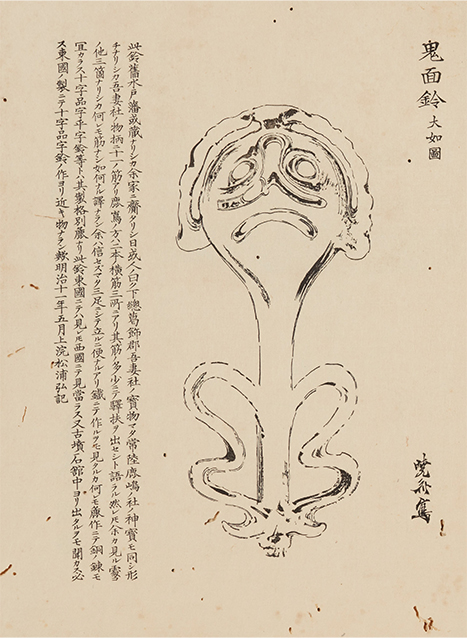 鬼面鈴 大如圖
暁斎寫
此鈴舊水戸藩或藏ナリシカ余家ニ齎タリシ日或人ノ曰ク下總葛飾郡吾妻社ノ寶物マタ常陸鹿嶋ノ社ノ神寶モ同シ形
チナリシカ吾妻社ノ物柄ニ十一ノ筋アリ鹿嶌ノ方ハ二本横筋三所ニアリ其筋ノ多少ニテ驛扶ヲ出セシト語ラル然レ𪜈余カ見ル處
ノ他三箇ナリシカ何レモ筋ナシ如何ナル譯ナラン余ハ信セスマタ三足ニシテ立ルニ便ナルアリ鐵ニテ作ルヲモ見タルカ何レモ麁作ニテ銅ノ錬モ
宜カラス十字品字平字鈴等トハ其製格別麁ナリ此鈴東國ニテハ見レ𪜈西國ニテ見當ラス又古墳石棺中ヨリ出タルヿモ聞カス必
ス東國ノ製ニテ十字品字鈴ノ作ヨリ近キ物ナラン歟明治十一年五月上浣松浦弘記